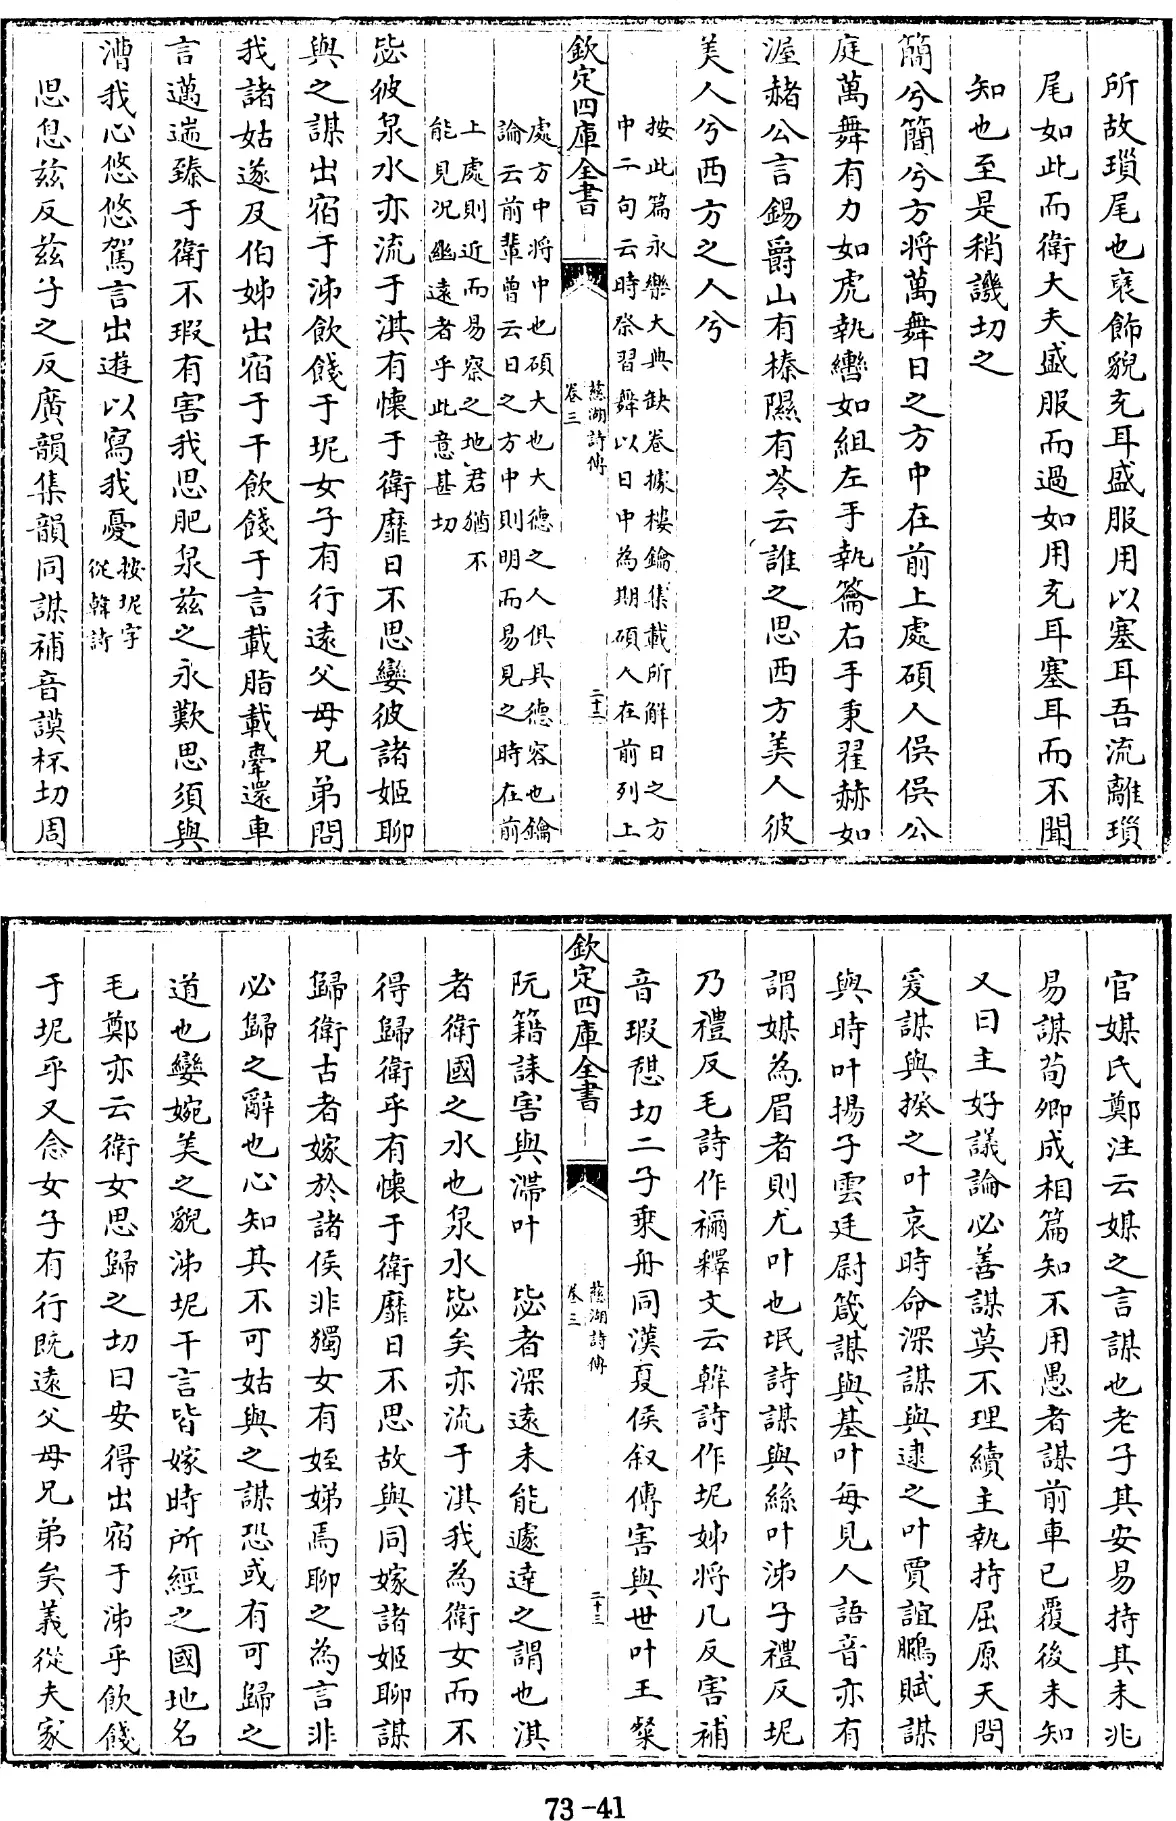 所故瑣尾也裒飾貌充耳盛服用以塞耳吾流離瑣
尾如此而衛大夫盛服而過如用充耳塞耳而不聞
知也至是稍譏切之
簡兮簡兮方將萬舞日之方中在前上處碩人俁俁公
庭萬舞有力如虎執轡如組左手執籥右手秉翟赫如
渥赭公言錫爵山有榛隰有苓云誰之思西方美人彼
美人兮西方之人兮
按此篇永樂大典缺卷據樓鑰集載所解日之方
中二句云時祭習舞以日中為期碩人在前列上
欽定四庫全書
慈湖詩傳
卷三
二十二
處方中將中也碩大也大德之人俱具德容也鑰
論云前輩曾云日之方中則明而易見之時在前
上處則近而易察之地君猶不
能見況幽遠者乎此意甚切
毖彼泉水亦流于淇有懷于衛靡日不思孌彼諸姬聊
與之謀出宿于泲飲餞于坭女子有行遠父母兄弟問
我諸姑遂及伯姊出宿于干飲餞于言載脂載舝還車
言邁遄臻于衛不瑕有害我思肥泉兹之永歎思須與
漕我心悠悠駕言出遊以寫我憂按坭字從韓詩
思息兹反兹子之反廣韻集韻同謀補音謨杯切周
官媒氏鄭注云媒之言謀也老子其安易持其未兆
易謀荀卿成相篇知不用愚者謀前車已覆後未知
又曰主好議論必善謀莫不理續主執持屈原天問
爰謀與揆之叶哀時命深謀與逮之叶賈誼鵩賦謀
與時叶揚子雲廷尉箴謀與基叶每見人語音亦有
謂媒為眉者則尤叶也氓詩謀與絲叶泲子禮反坭
乃禮反毛詩作禰釋文云韓詩作坭姊將几反害補
音瑕憇切二子乗舟同漢夏侯叙傳害與世叶王粲
欽定四庫全書
慈湖詩傳
卷三
二十三
阮籍誄害與滯叶 毖者深遠未能遽達之謂也淇
者衛國之水也泉水毖矣亦流于淇我為衛女而不
得歸衛乎有懷于衛靡日不思故與同嫁諸姬聊謀
歸衛古者嫁於諸侯非獨女有姪娣焉聊之為言非
必歸之辭也心知其不可姑與之謀恐或有可歸之
道也孌婉美之貌泲坭干言皆嫁時所經之國地名
毛鄭亦云衛女思歸之切曰安得出宿于泲乎飲餞
于坭乎又念女子有行既遠父母兄弟矣義從夫家
73-41